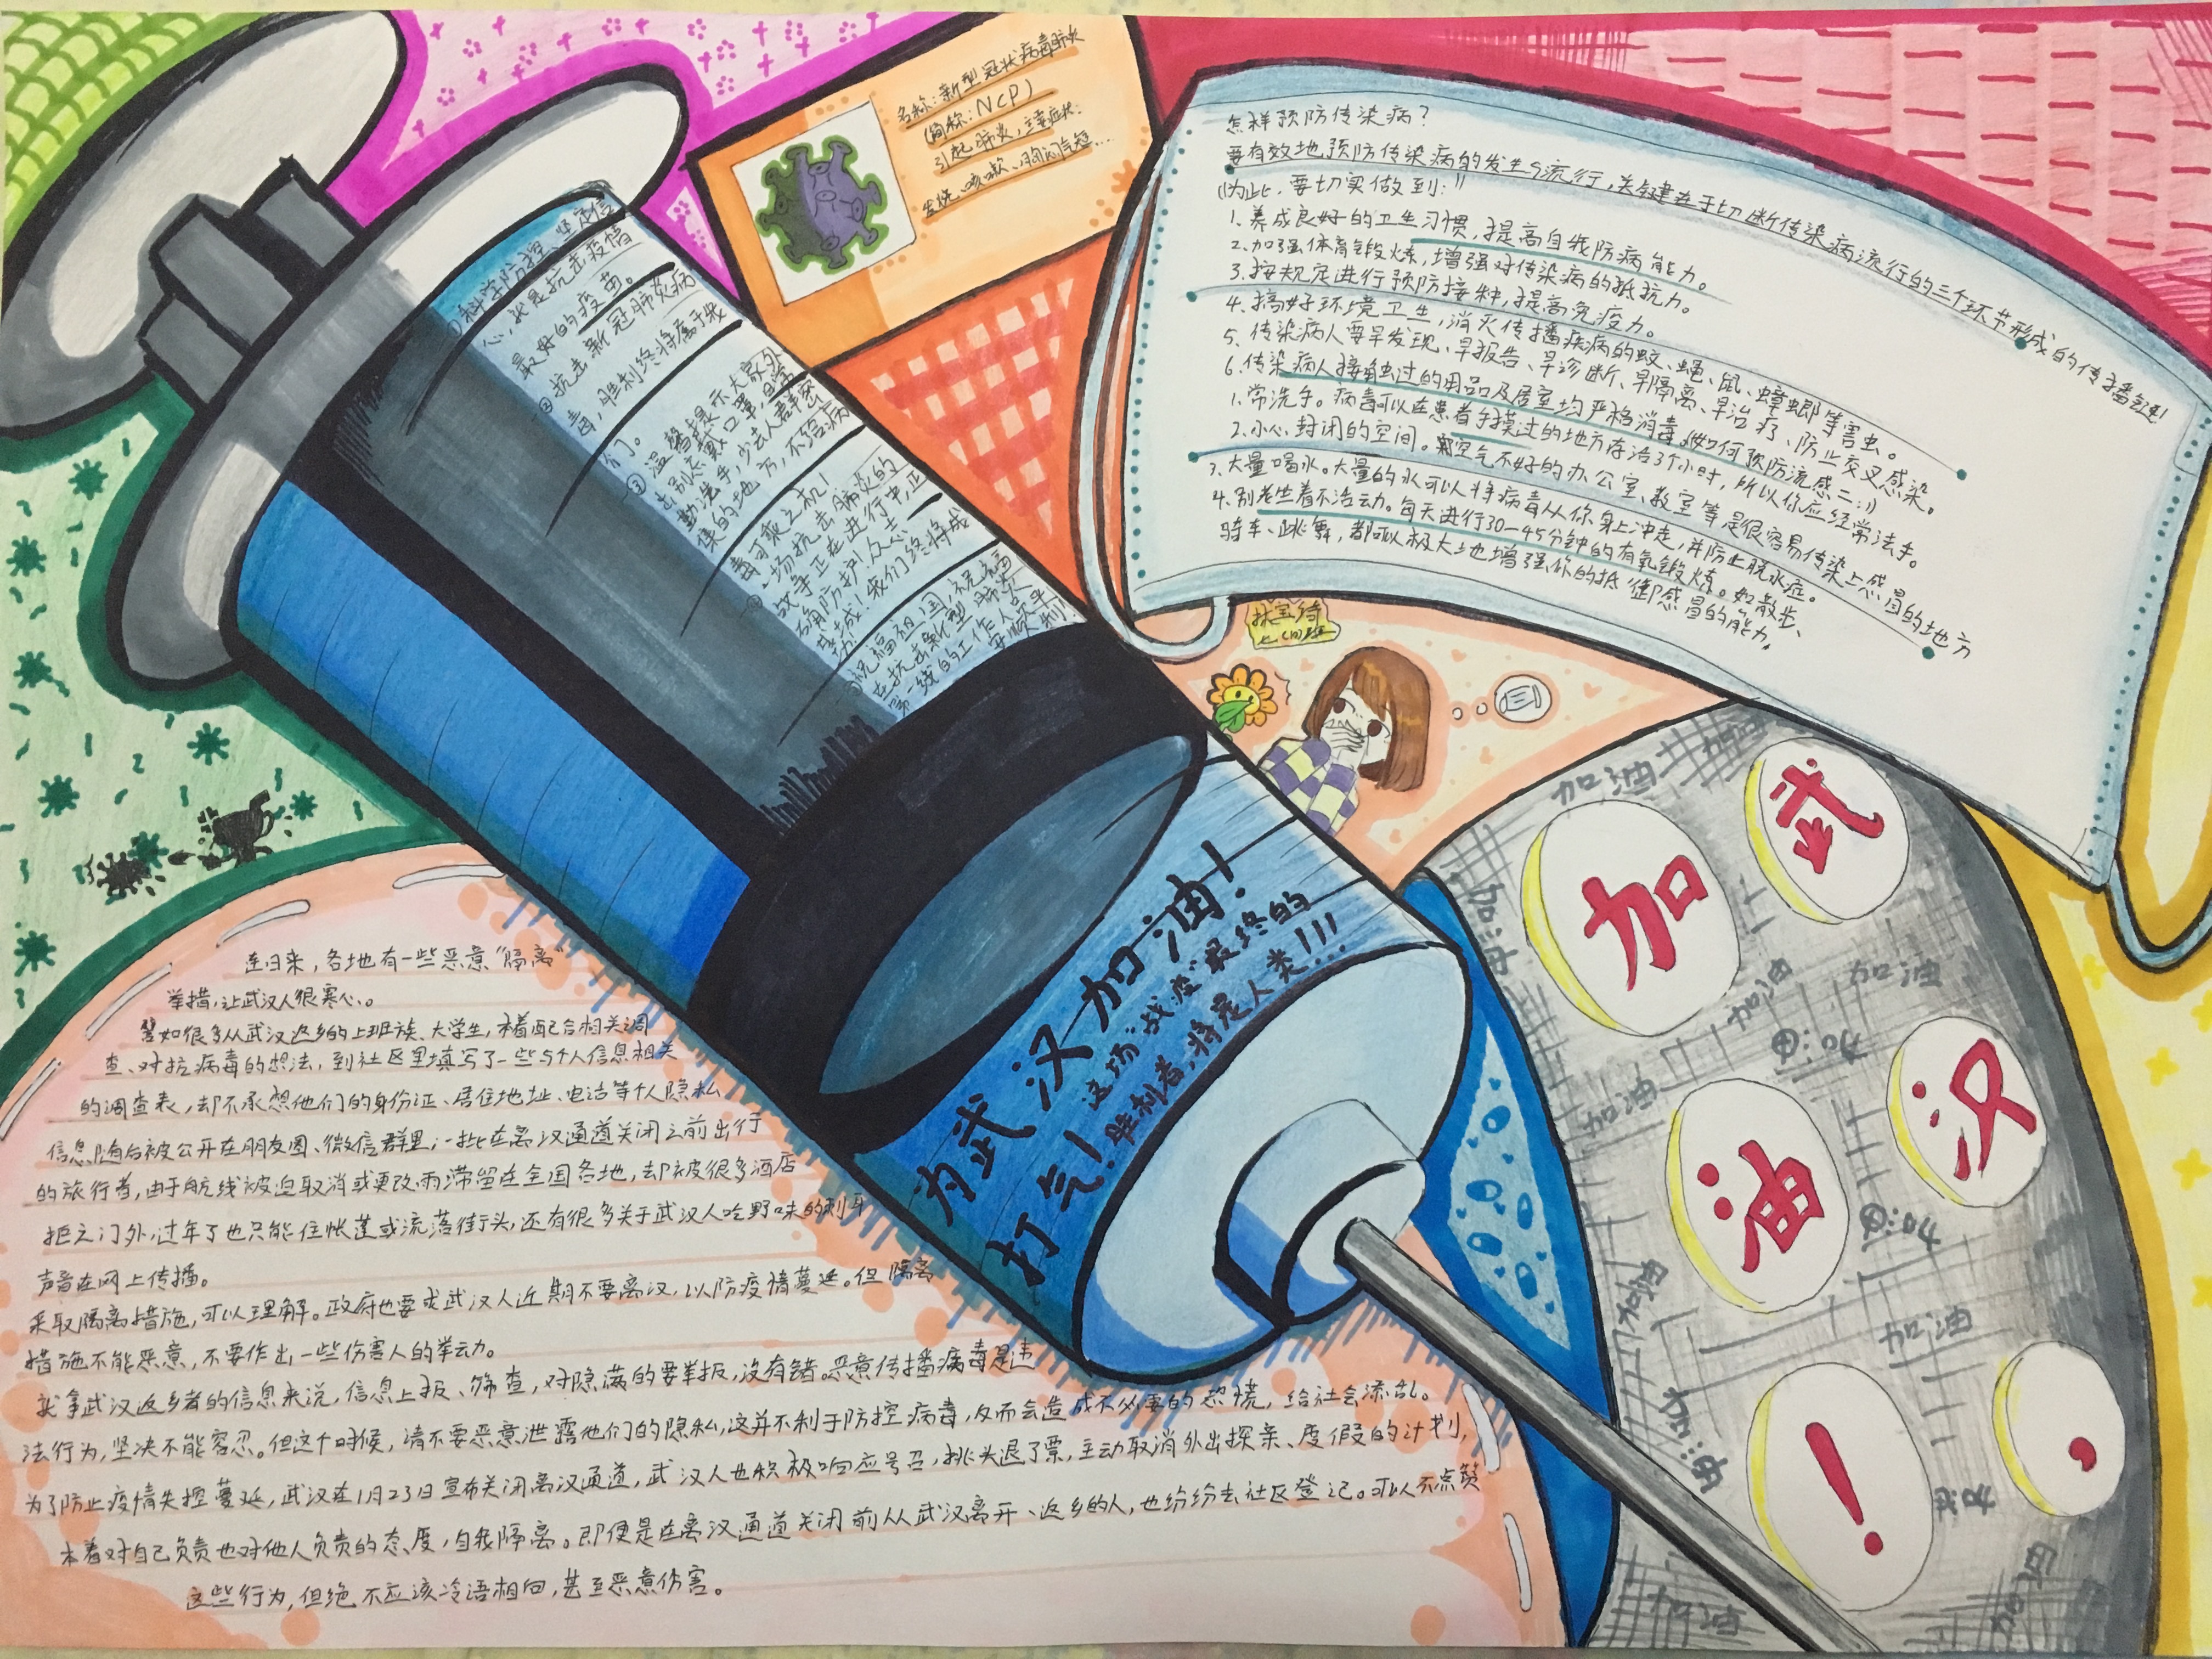 名称:新型冠状病毒肺炎
(简称:NCP)
引起肺炎,主要症状:
发烧、咳嗽、胸闷气短……
怎样预防传染病?
要有效地预防传染病的发生与流行,关键在于切断传染病流行的三个环节形成的传播链!
(为此,要切实做到:)
1.养成良好的卫生习惯,提高自我防病能力。
2.加强体育锻炼,增强对传染病的抵抗力。
3.按规定进行预防接种,提高免疫力。
4.搞好环境卫生,消灭传播疾病的蚊、蝇、鼠、蟑螂等害虫。
5.传染病人要早发现、早报告、早诊断、早隔离、早治疗、防止交叉感染。
6.传染病人接触过的用品及居室均严格消毒。(如何预防流感二:)
1.常洗手。病毒可以在患者手摸过的地方存活3个小时,所以你应经常洗手。
2.小心封闭的空间。空气不好的办公室、教室等是很容易传染上感冒的地方
3.大量喝水。大量的水可以将病毒从你身上冲走,并防止脱水症。
4.别老坐着不活动。每天进行30—45分钟的有氧锻炼。如散步、
骑车、跳舞,都可以极大地增强你的抵御感冒的能力。
①科学防控、坚定信
心,就是抗击疫情
最好的疫苗。
②抗击新冠肺炎病
毒,胜利终将属于我
们。
③温馨提示大家外
出别忘戴口罩,日常
勤洗手,少去人群密
集的地方,不给病
毒可乘之机!
④一场抗击肺炎的
战争正在进行中,正
确防护,众志
成城!我们终将成
功!
⑤祝福祖国,祝福
在抗击新型肺炎
第一线的工作人员早
日顺利!
为武汉加油!
打气!
这场“战疫”最终的
胜利者,将是人类!!!
连日来,各地有一些恶意“隔离”
举措,让武汉人很寒心。
譬如很多从武汉返乡的上班族、大学生,本着配合相关调
查、对抗病毒的想法,到社区里填写了一些与个人信息相关
的调查表,却不承想他们的身份证、居住地址、电话等个人隐私
信息随后被公开在朋友圈、微信群里;一批在离汉通道关闭之前出行
的旅行者,由于航线被迫取消或更改而滞留在全国各地,却被很多酒店
拒之门外,过年了也只能住帐篷或流落街头,还有很多关于武汉人吃野味的刺耳
声音在网上传播。
采取隔离措施,可以理解。政府也要求武汉人近期不要离汉,以防疫情蔓延。但隔离
措施不能恶意,不要作出一些伤害人的举动。
就拿武汉返乡者的信息来说,信息上报、筛查,对隐满的要举报,没有错。恶意传播病毒是违
法行为,坚决不能容忍。但这个时候,请不要恶意泄露他们的隐私,这并不利于防控病毒,反而会造成不必要的恐慌,给社会添乱。
为了防止疫情失控蔓延,武汉在1月23日宣布关闭离汉通道,武汉人也积极响应号召,挑头退了票,主动取消外出探亲、度假的计划,
本着对自己负责也对他人负责的态度,自我隔离。即便是在离汉通道关闭前从武汉离开、返乡的人,也纷纷去社区登记。可以不点赞
这些行为,但绝不应该冷语相向,甚至恶意伤害。
武
汉
,
加
油
!
加油
加油
加油
加油
加油
加油
加油
加油
加油
加油